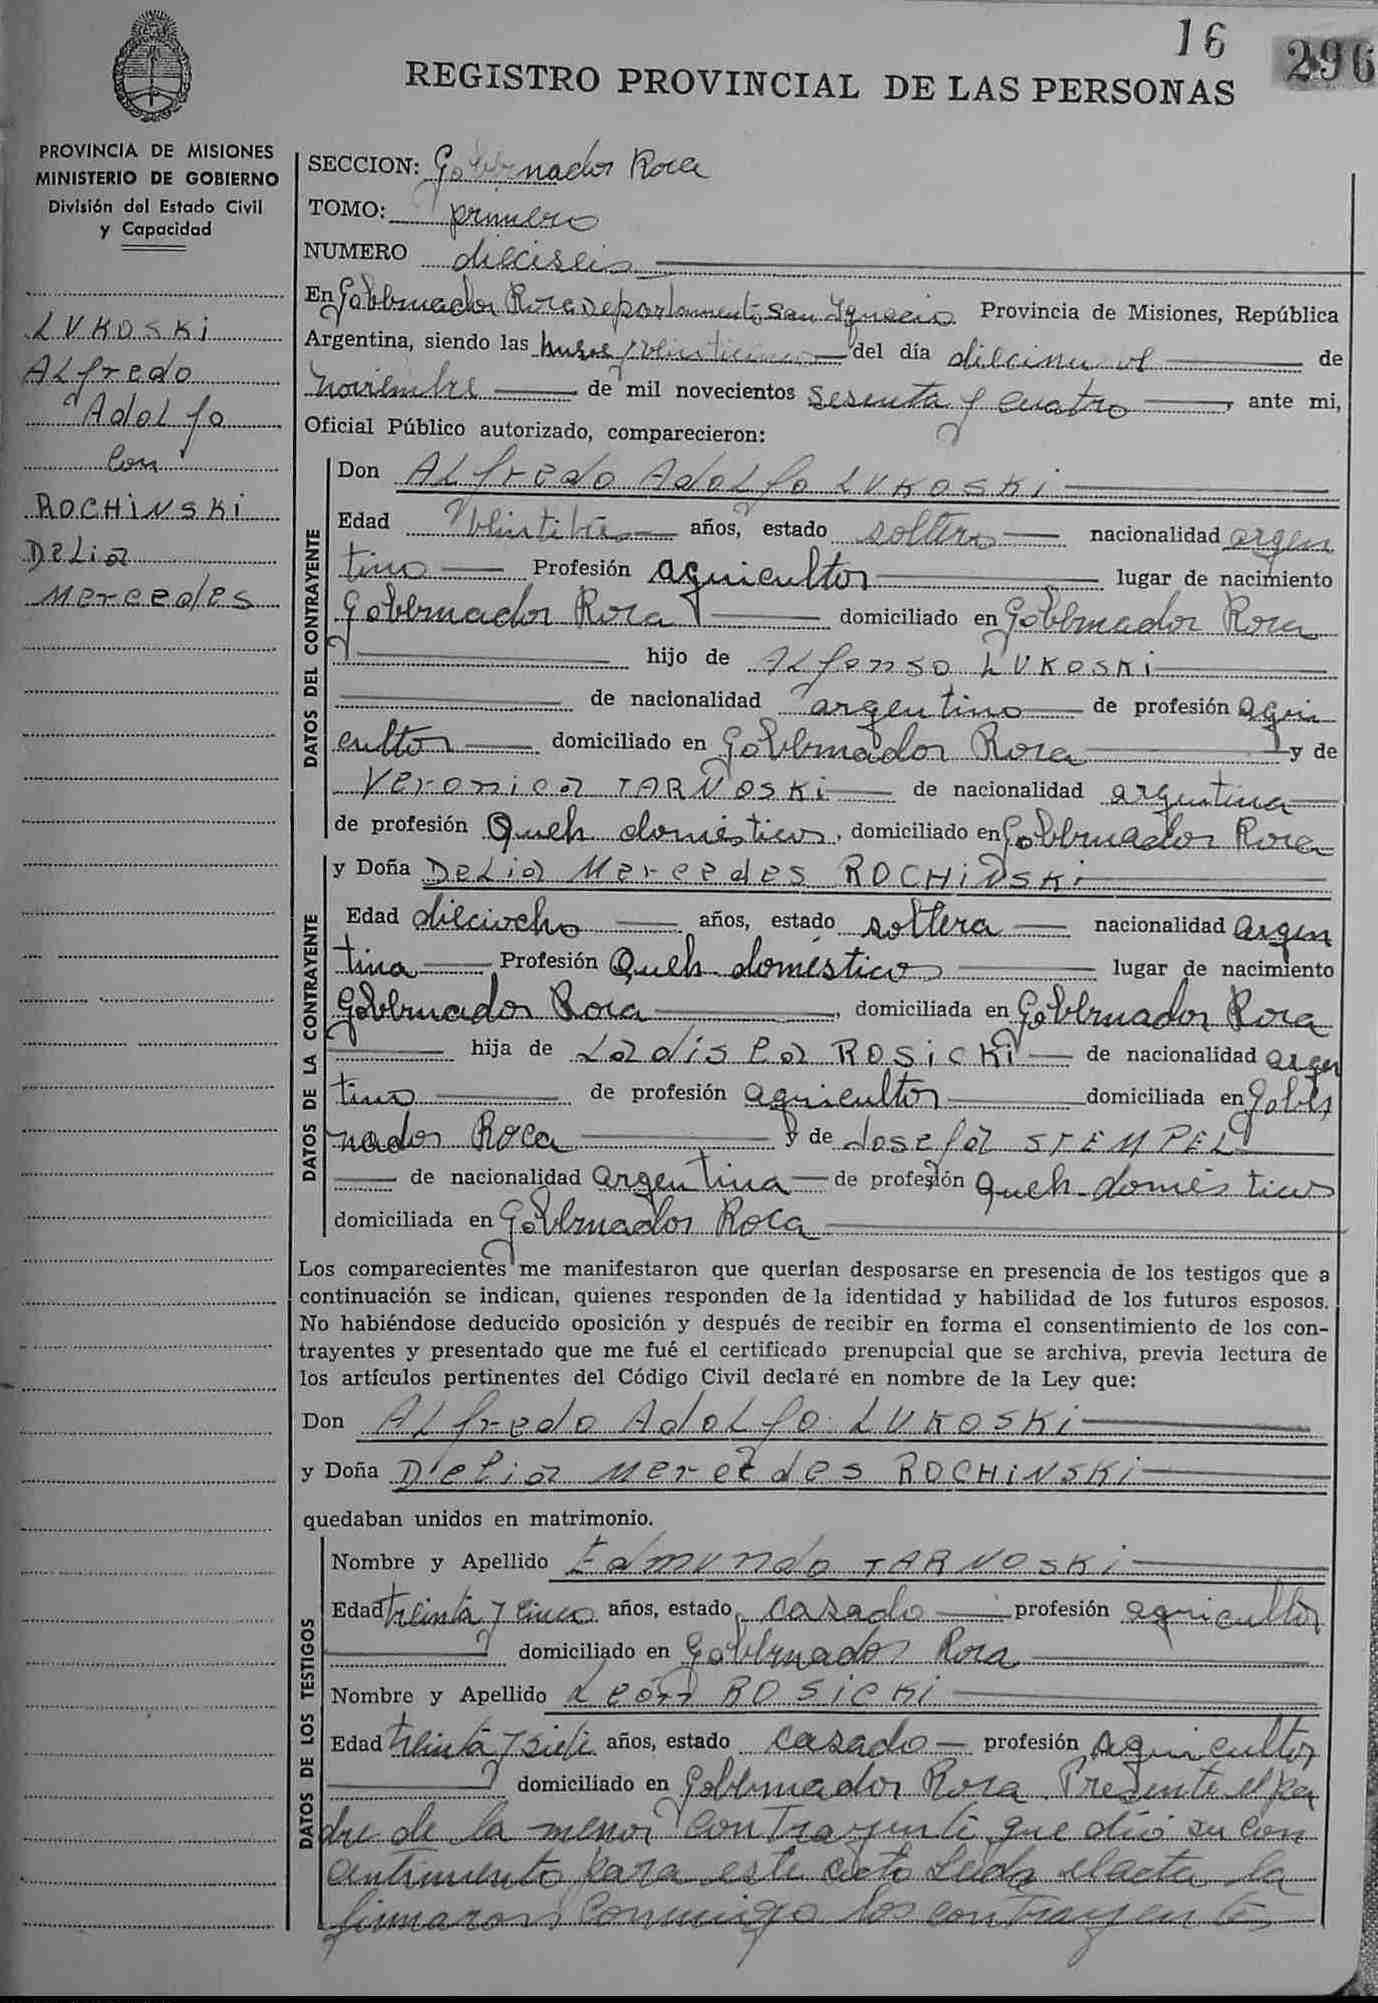 16
296
REGISTRO PROVINCIAL DE LAS PERSONAS
PROVINCIA DE MISIONES
MINISTERIO DE GOBIERNO
División del Estado Civil
y Capacidad
LUKOSKI
ALfredo
AdoLfo
con
ROCHiNSKi
DeLia
Mercedes
SECCION: Gobernador Roca
TOMO: primero
NUMERO dieciseis
En Gobernador Roca departamento San Ignacio Provincia de Misiones, República
Argentina, siendo las del día diecinueve de
noviembre de mil novecientos sesenta y cuatro, ante mi,
Oficial Público autorizado, comparecieron:
DATOS DEL CONTRAYENTE
Don ALfredo AdoLfo LUKOSKi
Edad veintitres años, estado soltero nacionalidad argen
tino Profesión agricultor lugar de nacimiento
Gobernador Roca domiciliado en Gobernador Roca
hijo de ALfonso LUKOSKi
de nacionalidad argentino de profesión agri
cultor domiciliado en Gobernador Roca y de
Veronica TARNOSKi de nacionalidad argentina
de profesión Queh. domésticos, domiciliado en Gobernador Roca
DATOS DE LA CONTRAYENTE
y Doña DeLia Mercedes ROCHiNSKi
Edad dieciocho años, estado soltera nacionalidad argen
tina Profesión Queh. domésticos lugar de nacimiento
Gobernador Roca, domiciliada en Gobernador Roca
hija de Ladislao ROSiCKi de nacionalidad argen
tino de profesión agricultor domiciliada en Gober
nador Roca y de Josefa STEMPEL
de nacionalidad argentina de profesión Queh. domésticos
domiciliada en Gobernador Roca
Los comparecientes me manifestaron que querían desposarse en presencia de los testigos que a
continuación se indican, quienes responden de la identidad y habilidad de los futuros esposos.
No habiéndose deducido oposición y después de recibir en forma el consentimiento de los con-
trayentes y presentado que me fué el certificado prenupcial que se archiva, previa lectura de
los artículos pertinentes del Código Civil declaré en nombre de la Ley que:
Don ALfredo AdoLfo LUKOSKi
y Doña Delia Mercedes ROCHiNSKi
quedaban unidos en matrimonio.
DATOS DE LOS TESTIGOS
Nombre y Apellido Edmundo TARNOSKi
Edad treinta y cinco años, estado casado profesión agricultor
domiciliado en Gobernador Roca
Nombre y Apellido León ROSiCKi
Edad treinta y siete años, estado casado profesión agricultor
domiciliado en Gobernador Roca. Presente el pa
dre de la menor contrayente que dió su con
sentimiento para este acto Leida el acta la
firmaron conmigo los contrayentes